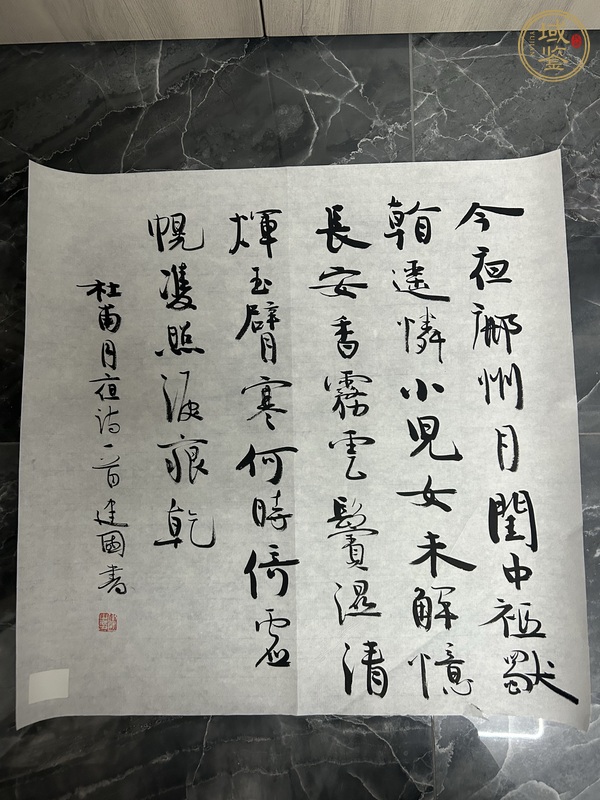 今夜鄜州月閨中祗獨
看遙憐小兒女未解憶
長安香霧雲鬢濕清
輝玉臂寒何時倚虛
幌雙照淚痕乾
杜甫月夜詩一首建國書
域鉴